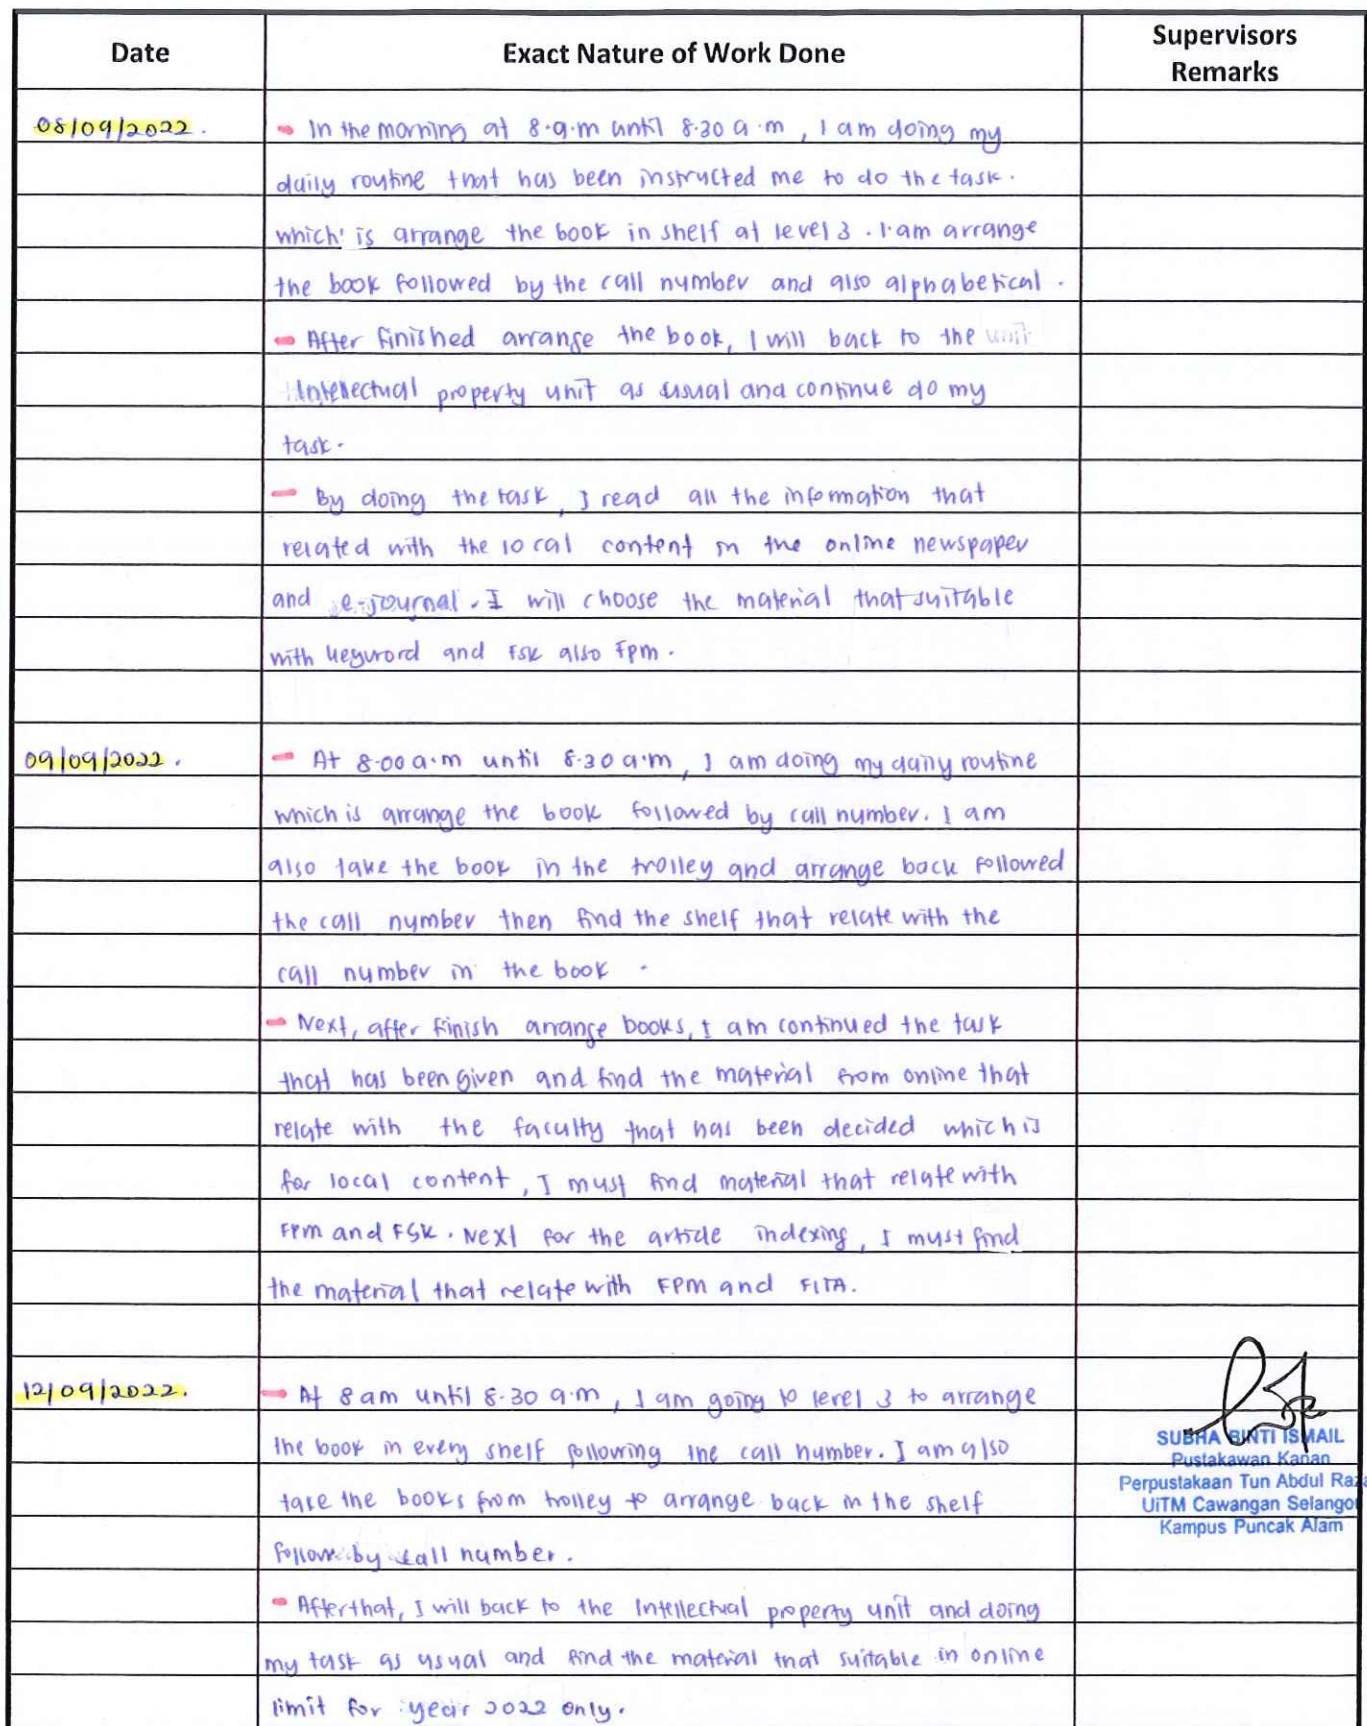 Date
Exact Nature of Work Done
Supervisors
Remarks
08/09/2022.
- In the morning at 8.a.m until 8.30 a.m, I am doing my
daily routine that has been instructed me to do the task.
which is arrange the book in shelf at level 3. I am arrange
the book followed by the call number and also alphabetical.
- After finished arrange the book, I will back to the unit
Intellectual property unit as usual and continue do my
task.
- By doing the task, I read all the information that
related with the local content in the online newspaper
and e-journal. I will choose the material that suitable
with keyword and FSK also FPM.
09/09/2022.
- At 8.00 a.m until 8.30 a.m, I am doing my daily routine
which is arrange the book followed by call number. I am
also take the book in the trolley and arrange back followed
the call number then find the shelf that relate with the
call number in the book.
- Next, after finish arrange books, I am continued the task
that has been given and find the material from online that
relate with the faculty that has been decided which is
for local content, I must find material that relate with
FPM and FSK. Next for the article indexing, I must find
the material that relate with FPM and FITA.
12/09/2022.
- At 8 am until 8.30 a.m, I am going to level 3 to arrange
the book in every shelf following the call number. I am also
take the books from trolley to arrange back in the shelf
follow by call number.
SUBHA BINTI ISMAIL
Pustakawan Kanan
Perpustakaan Tun Abdul Raza
UiTM Cawangan Selangor
Kampus Puncak Alam
- After that, I will back to the Intellectual property unit and doing
my task as usual and find the material that suitable in online
limit for year 2022 only.